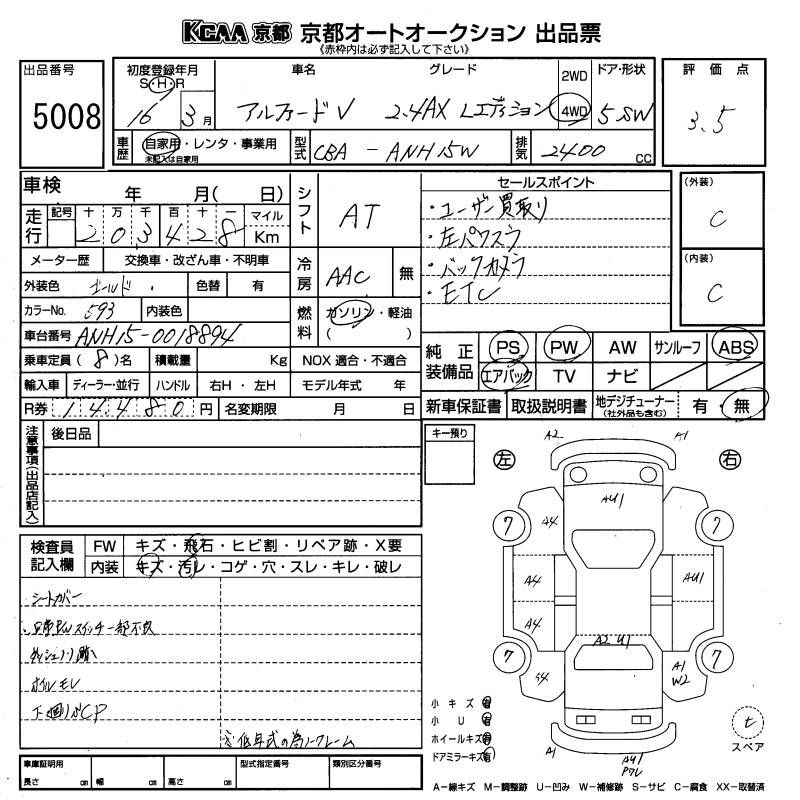 KCAA 京都 京都オートオークション 出品票
《赤枠内は必ず記入して下さい》
出品番号
5008
初度登録年月
S・H・R
16 3 月
車名
アルファードV
グレード
2.4AX Lエディション
2WD
4WD
ドア・形状
5 SW
評価点
3.5
車歴
自家用・レンタ・事業用
未記入は自家用
型式
CBA - ANH15W
排気
2400 CC
車検 年 月( 日)
走行
記号 十 万 千 百 十 一
203428
マイル
Km
メーター歴 交換車・改ざん車・不明車
外装色 ゴールド 色替 有
カラーNo. 593 内装色
車台番号 ANH15-0018894
乗車定員 (8)名 積載量 Kg
NOX 適合・不適合
輸入車 ディーラー・並行 ハンドル 右H・左H モデル年式 年
R券 14480 円 名変期限 月 日
シフト AT
冷房 AAC 無
燃料 ガソリン・軽油
( )
セールスポイント
・ユーザー買取り
・左パワスラ
・バックカメラ
・ETC
(外装)
C
(内装)
C
純正装備品
PS PW AW サンルーフ ABS
エアバック TV ナビ
新車保証書 取扱説明書 地デジチューナー(社外品も含む) 有・無
注意事項(出品店記入)
後日品
キー預り
左 右
A2 A1
AU1
7 7
A4
A4 AU1
A4
A2 U1
7 7
A4
A1
W2
A1 AU1
スペア
検査員記入欄
FW キズ・飛石・ヒビ割・リペア跡・X要
内装 キズ・汚レ・コゲ・穴・スレ・キレ・破レ
・シートカバー
スイッチ一部不良
オイルモレ
下廻りサビCP
低年式の為ノークレーム
小キズ 有
小U 有
ホイールキズ 有
ドアミラーキズ 有
車庫証明用
長さ cm 幅 cm 高さ cm
型式指定番号
類別区分番号
A-線キズ M-調整跡 U-凹み W-補修跡 S-サビ C-腐食 XX-取替済